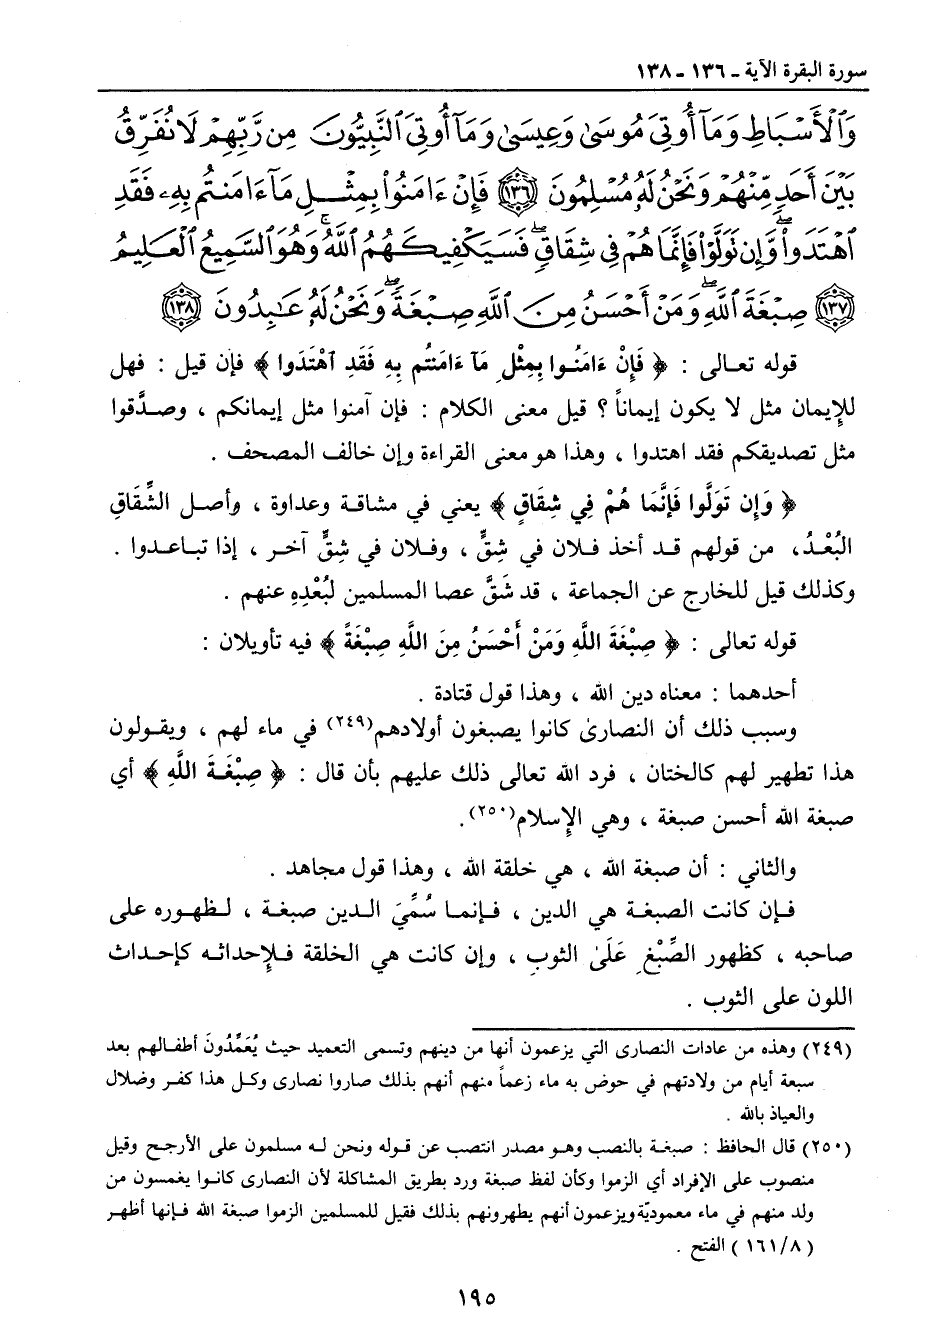 سورة البقرة الآية ـ ١٣٦ ـ ١٣٨
وَٱلْأَسْبَاطِ وَمَآ أُوتِىَ مُوسَىٰ وَعِيسَىٰ وَمَآ أُوتِىَ ٱلنَّبِيُّونَ مِن رَّبِّهِمْ لَا نُفَرِّقُ
بَيْنَ أَحَدٍ مِّنْهُمْ وَنَحْنُ لَهُۥ مُسْلِمُونَ ١٣٦ فَإِنْ ءَامَنُوا۟ بِمِثْلِ مَآ ءَامَنتُم بِهِۦ فَقَدِ
ٱهْتَدَوا۟ ۖ وَّإِن تَوَلَّوْا۟ فَإِنَّمَا هُمْ فِى شِقَاقٍ ۖ فَسَيَكْفِيكَهُمُ ٱللَّهُ ۚ وَهُوَ ٱلسَّمِيعُ ٱلْعَلِيمُ
١٣٧ صِبْغَةَ ٱللَّهِ ۖ وَمَنْ أَحْسَنُ مِنَ ٱللَّهِ صِبْغَةً ۖ وَنَحْنُ لَهُۥ عَـٰبِدُونَ ١٣٨
قوله تعالى : ﴿ فَإِنْ ءَامَنُوا بِمِثْلِ مَآ ءَامَنتُم بِهِ فَقَدِ اهْتَدَوا ﴾ فإن قيل : فهل
للإيمان مثل لا يكون إيماناً ؟ قيل معنى الكلام : فإن آمنوا مثل إيمانكم ، وصدَّقوا
مثل تصديقكم فقد اهتدوا ، وهذا هو معنى القراءة وإن خالف المصحف .
﴿ وَإِن تَوَلَّوا فَإِنَّمَا هُمْ فِي شِقَاقٍ ﴾ يعني في مشاقة وعداوة ، وأصل الشِّقَاقِ
البُعْدُ، من قولهم قد أخذ فلان في شِقٍّ ، وفلان في شِقٍّ آخر ، إذا تباعدوا .
وكذلك قيل للخارج عن الجماعة ، قد شَقَّ عصا المسلمين لبُعْدِهِ عنهم .
قوله تعالى : ﴿ صِبْغَةَ اللَّهِ وَمَنْ أَحْسَنُ مِنَ اللَّهِ صِبْغَةً ﴾ فيه تأويلان :
أحدهما : معناه دين الله ، وهذا قول قتادة .
وسبب ذلك أن النصارىٰ كانوا يصبغون أولادهم(٢٤٩) في ماء لهم ، ويقولون
هذا تطهير لهم كالختان ، فرد الله تعالى ذلك عليهم بأن قال : ﴿ صِبْغَةَ اللَّهِ ﴾ أي
صبغة الله أحسن صبغة ، وهي الإسلام(٢٥٠).
والثاني : أن صبغة الله ، هي خلقة الله ، وهذا قول مجاهد .
فإن كانت الصبغة هي الدين ، فإنما سُمِّيَ الدين صبغة ، لظهوره على
صاحبه ، كظهور الصِّبْغِ عَلَىٰ الثوبِ ، وإن كانت هي الخلقة فلإحداثه كإحداث
اللون على الثوب .
(٢٤٩) وهذه من عادات النصارى التي يزعمون أنها من دينهم وتسمى التعميد حيث يُعَمِّدُونَ أطفالهم بعد
سبعة أيام من ولادتهم في حوض به ماء زعماً منهم أنهم بذلك صاروا نصارى وكل هذا كفر وضلال
والعياذ بالله .
(٢٥٠) قال الحافظ : صبغة بالنصب وهو مصدر انتصب عن قوله ونحن له مسلمون على الأرجح وقيل
منصوب على الإفراد أي الزموا وكأن لفظ صبغة ورد بطريق المشاكلة لأن النصارى كانوا يغمسون من
ولد منهم في ماء معموديّة ويزعمون أنهم يطهرونهم بذلك فقيل للمسلمين الزموا صبغة الله فإنها أظهر
( ١٦١/٨ ) الفتح .
١٩٥